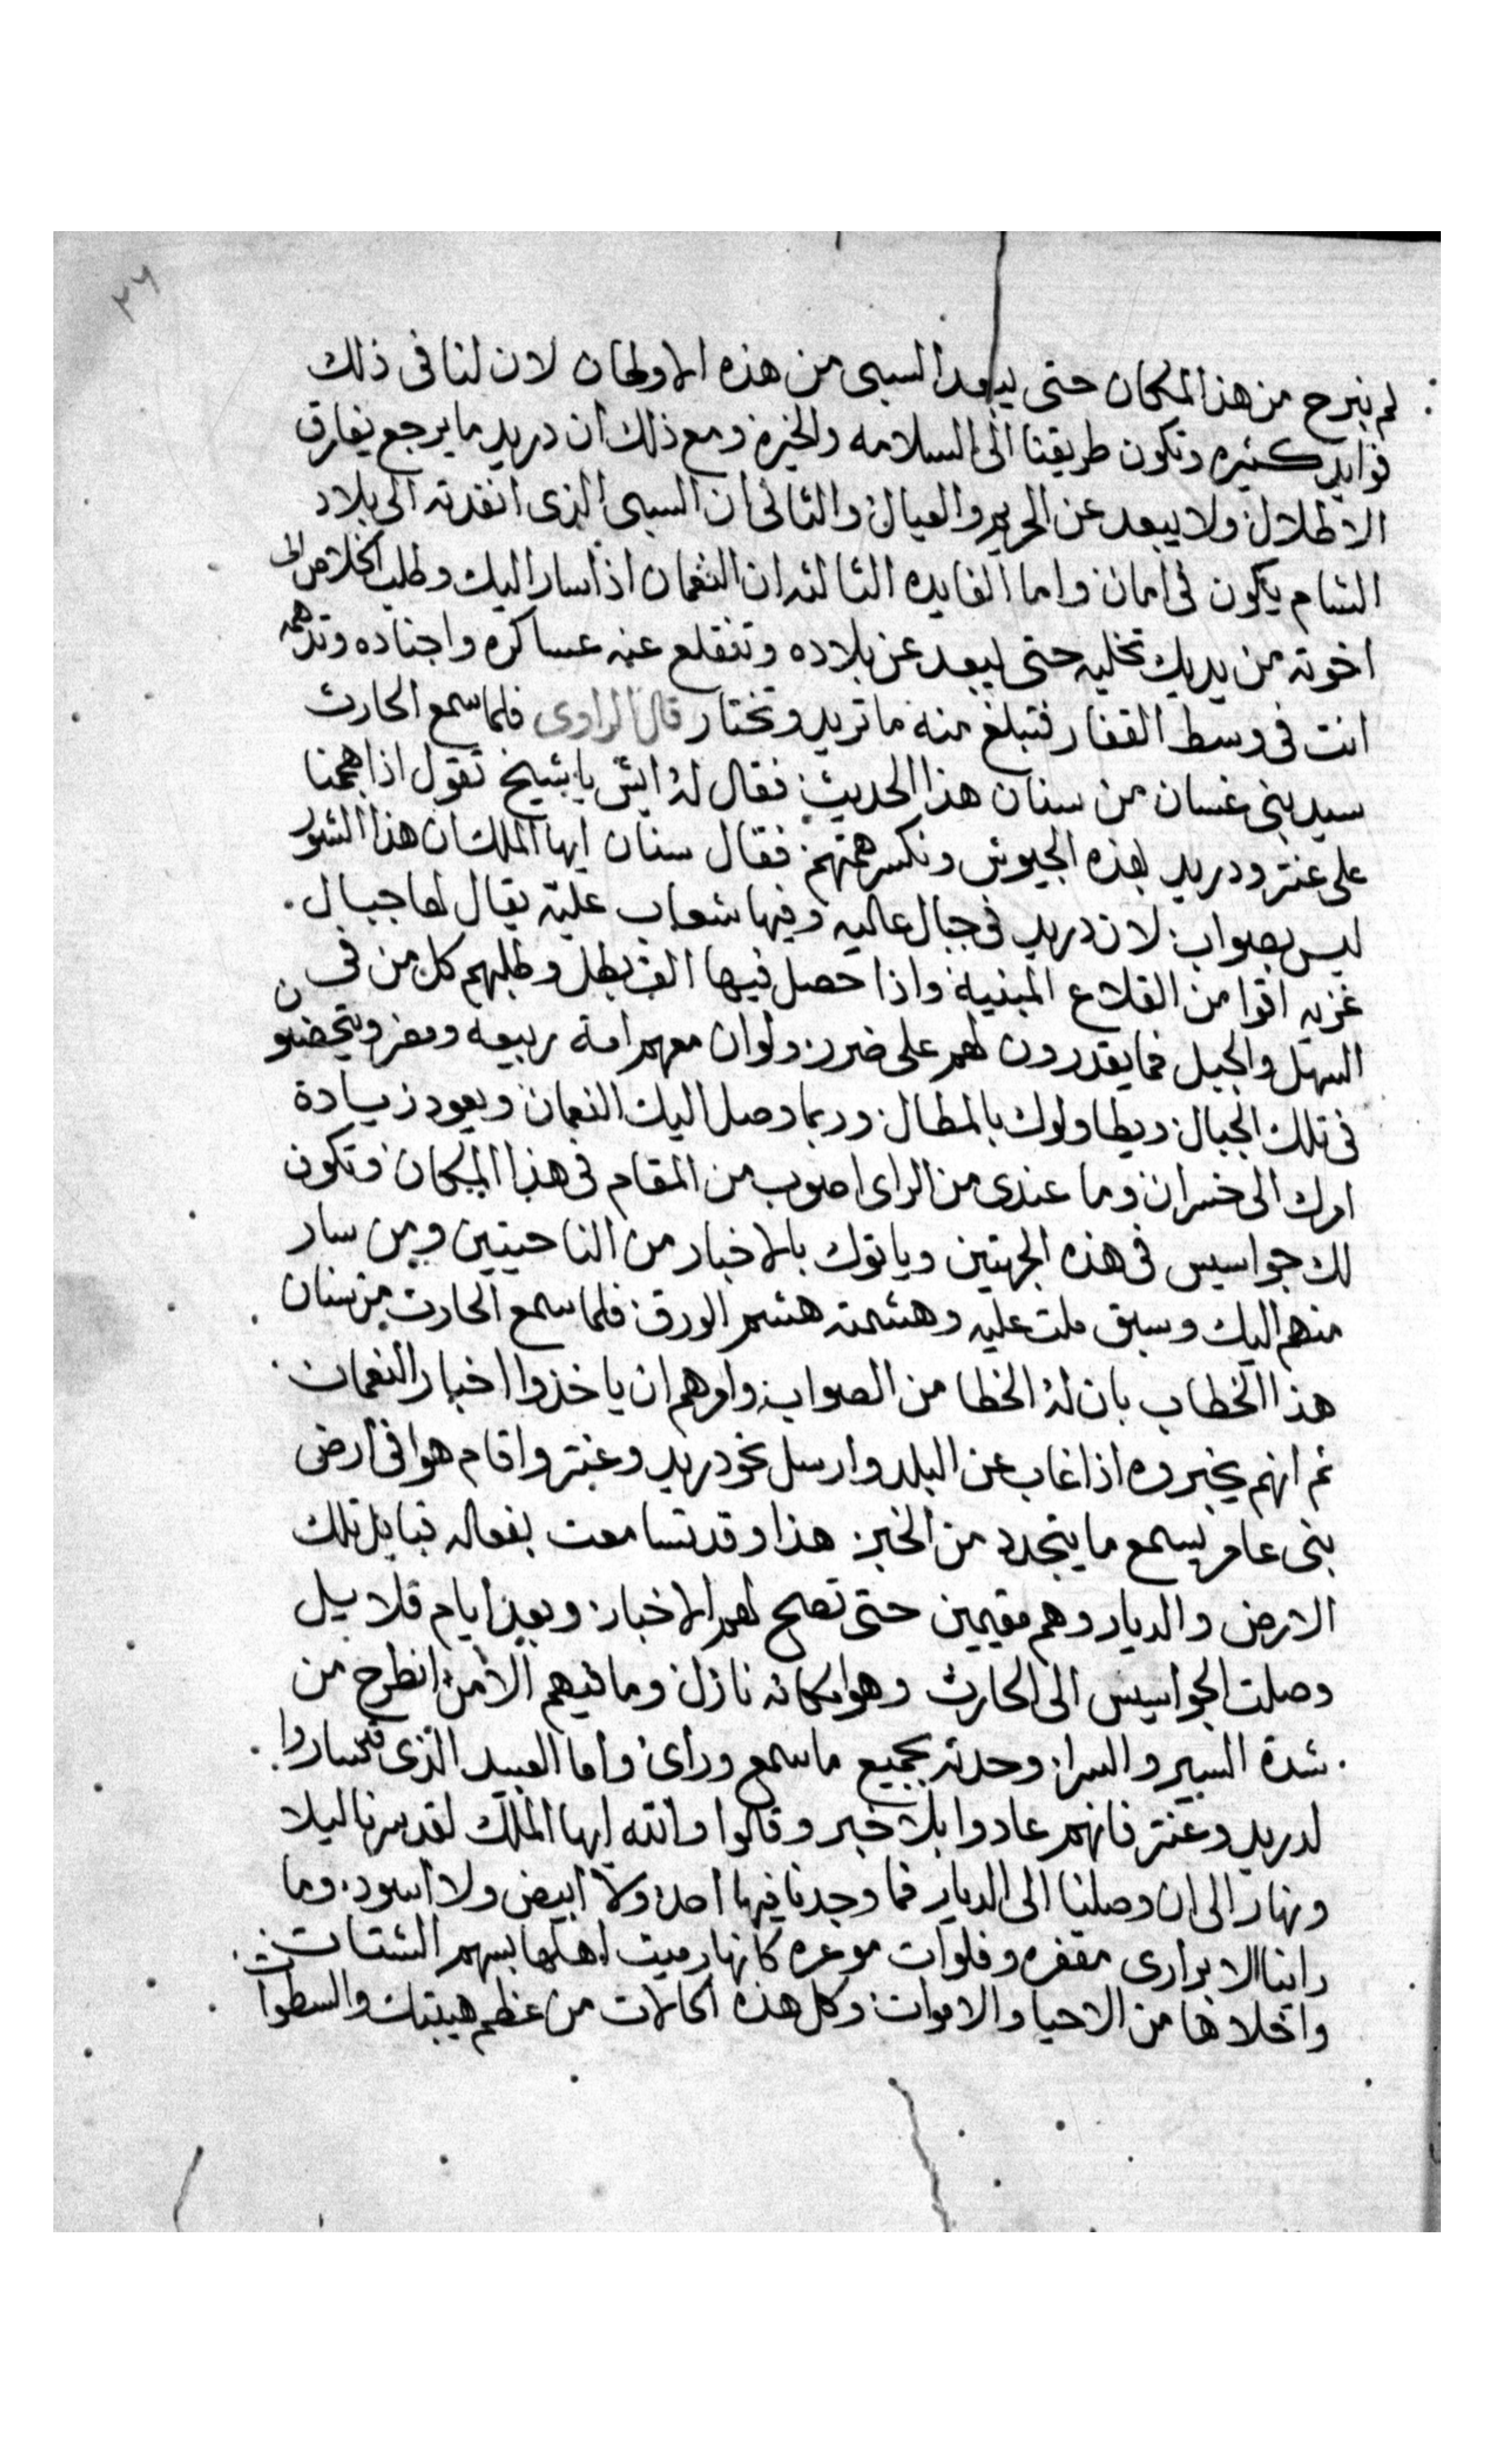 ٢٦
لم نبرح من هذا المكان حتى يبعد السبى من هذه الاوطان لان لنا فى ذلك
فوايد كثيره وتكون طريقنا الى السلامه والخيره ومع ذلك ان دريد ما يرجع يفارق
الاطلال ولا يبعد عن الحريم والعيال والثانى ان السبى الذى انفدته الى بلاد
الشام يكون فى امان واما الفايده الثالثه ان النعمان اذا سار اليك وطلب اخلاص
اخوته من يديك تخليه حتى يبعد عن بلاده وتنقلع عنه عساكره واجناده وتدهمه
انت فى وسط القفار فتبلغ منه ما تريد وتختار قال الراوى فلما سمع الحارث
سيد بنى غسان من سنان هذا الحديث فقال له ايش يا شيخ تقول اذا هجمنا
على عنتر ودريد بهذه الجيوش ونكسر همتهم فقال سنان ايها الملك ان هذا الشور
ليس بصواب لان دريد فى جبال عاليه وفيها شعاب عليّه يقال لها جبال
غزيه اقوا من القلاع المبنيه واذا حصل فيها الف بطل وطلبهم كل من فى
السهل والجبل فما يقدرون لهم على ضرر ولو ان معهم امة ربيعه ومضر ويتحصنو
فى تلك الجبال ويطاولوك بالمطال وربما وصل اليك النعمان ويعود زيادة
امرك الى خسران وما عندى من الراى اصوب من المقام فى هذا المكان وتكون
لك جواسيس فى هذه الجهتين وياتوك بالاخبار من الناحيتين ومن سار
منهم اليك وسبق ملت عليه وهشمته هشم الورق فلما سمع الحارث من سنان
هذا الخطاب بان له الخطا من الصواب وامرهم ان ياخذوا اخبار النعمان
ثم انهم يخبروه اذا غاب عن البلد وارسل نحو دريد وعنتر واقام هوا فى ارض
بنى عامر يسمع ما يتجدد من الخبر هذا وقد تسامعت بفعاله قبايل تلك
الارض والديار وهم مقيمين حتى تصح لهم الاخبار وبعد ايام قلايل
وصلت الجواسيس الى الحارث وهوا مكانه نازل وما فيهم الا من انطرح من
شدة السير والسرا وحدثه بجميع ما سمع وراى واما العبيد الذى ساروا
لدريد وعنتر فانهم عادوا بلا خبر وقالوا والله ايها الملك لقد سرنا ليلا
ونهار الى ان وصلنا الى الديار فما وجدنا فيها احد ولا ابيض ولا اسود وما
راينا الا برارى مقفره وفلوات موعره كانها رميت اهلها بسهم الشتات
واخلاها من الاحيا والاموات وكل هذه الحالات من عظم هيبتك والسطوات